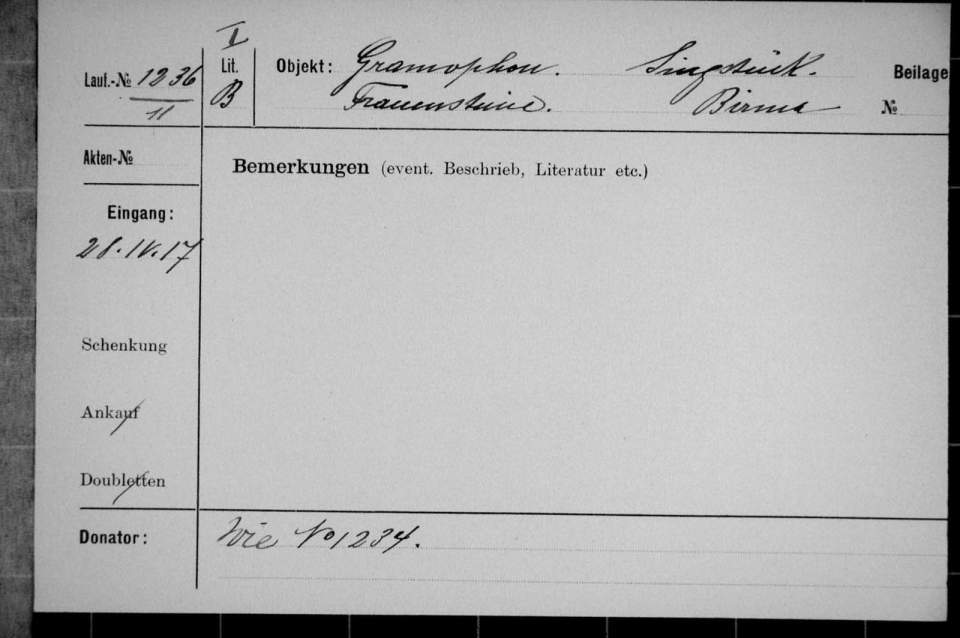 I
Lauf.-№ 1236
11
Lit.
B
Objekt: Gramophon. Singstück.
Frauenstimme. Birma
Beilage
№
Akten-№
Bemerkungen (event. Beschrieb, Literatur etc.)
Eingang:
28.IV.17
Schenkung
Ankauf
Doubletten
Donator: Wie No 1234.